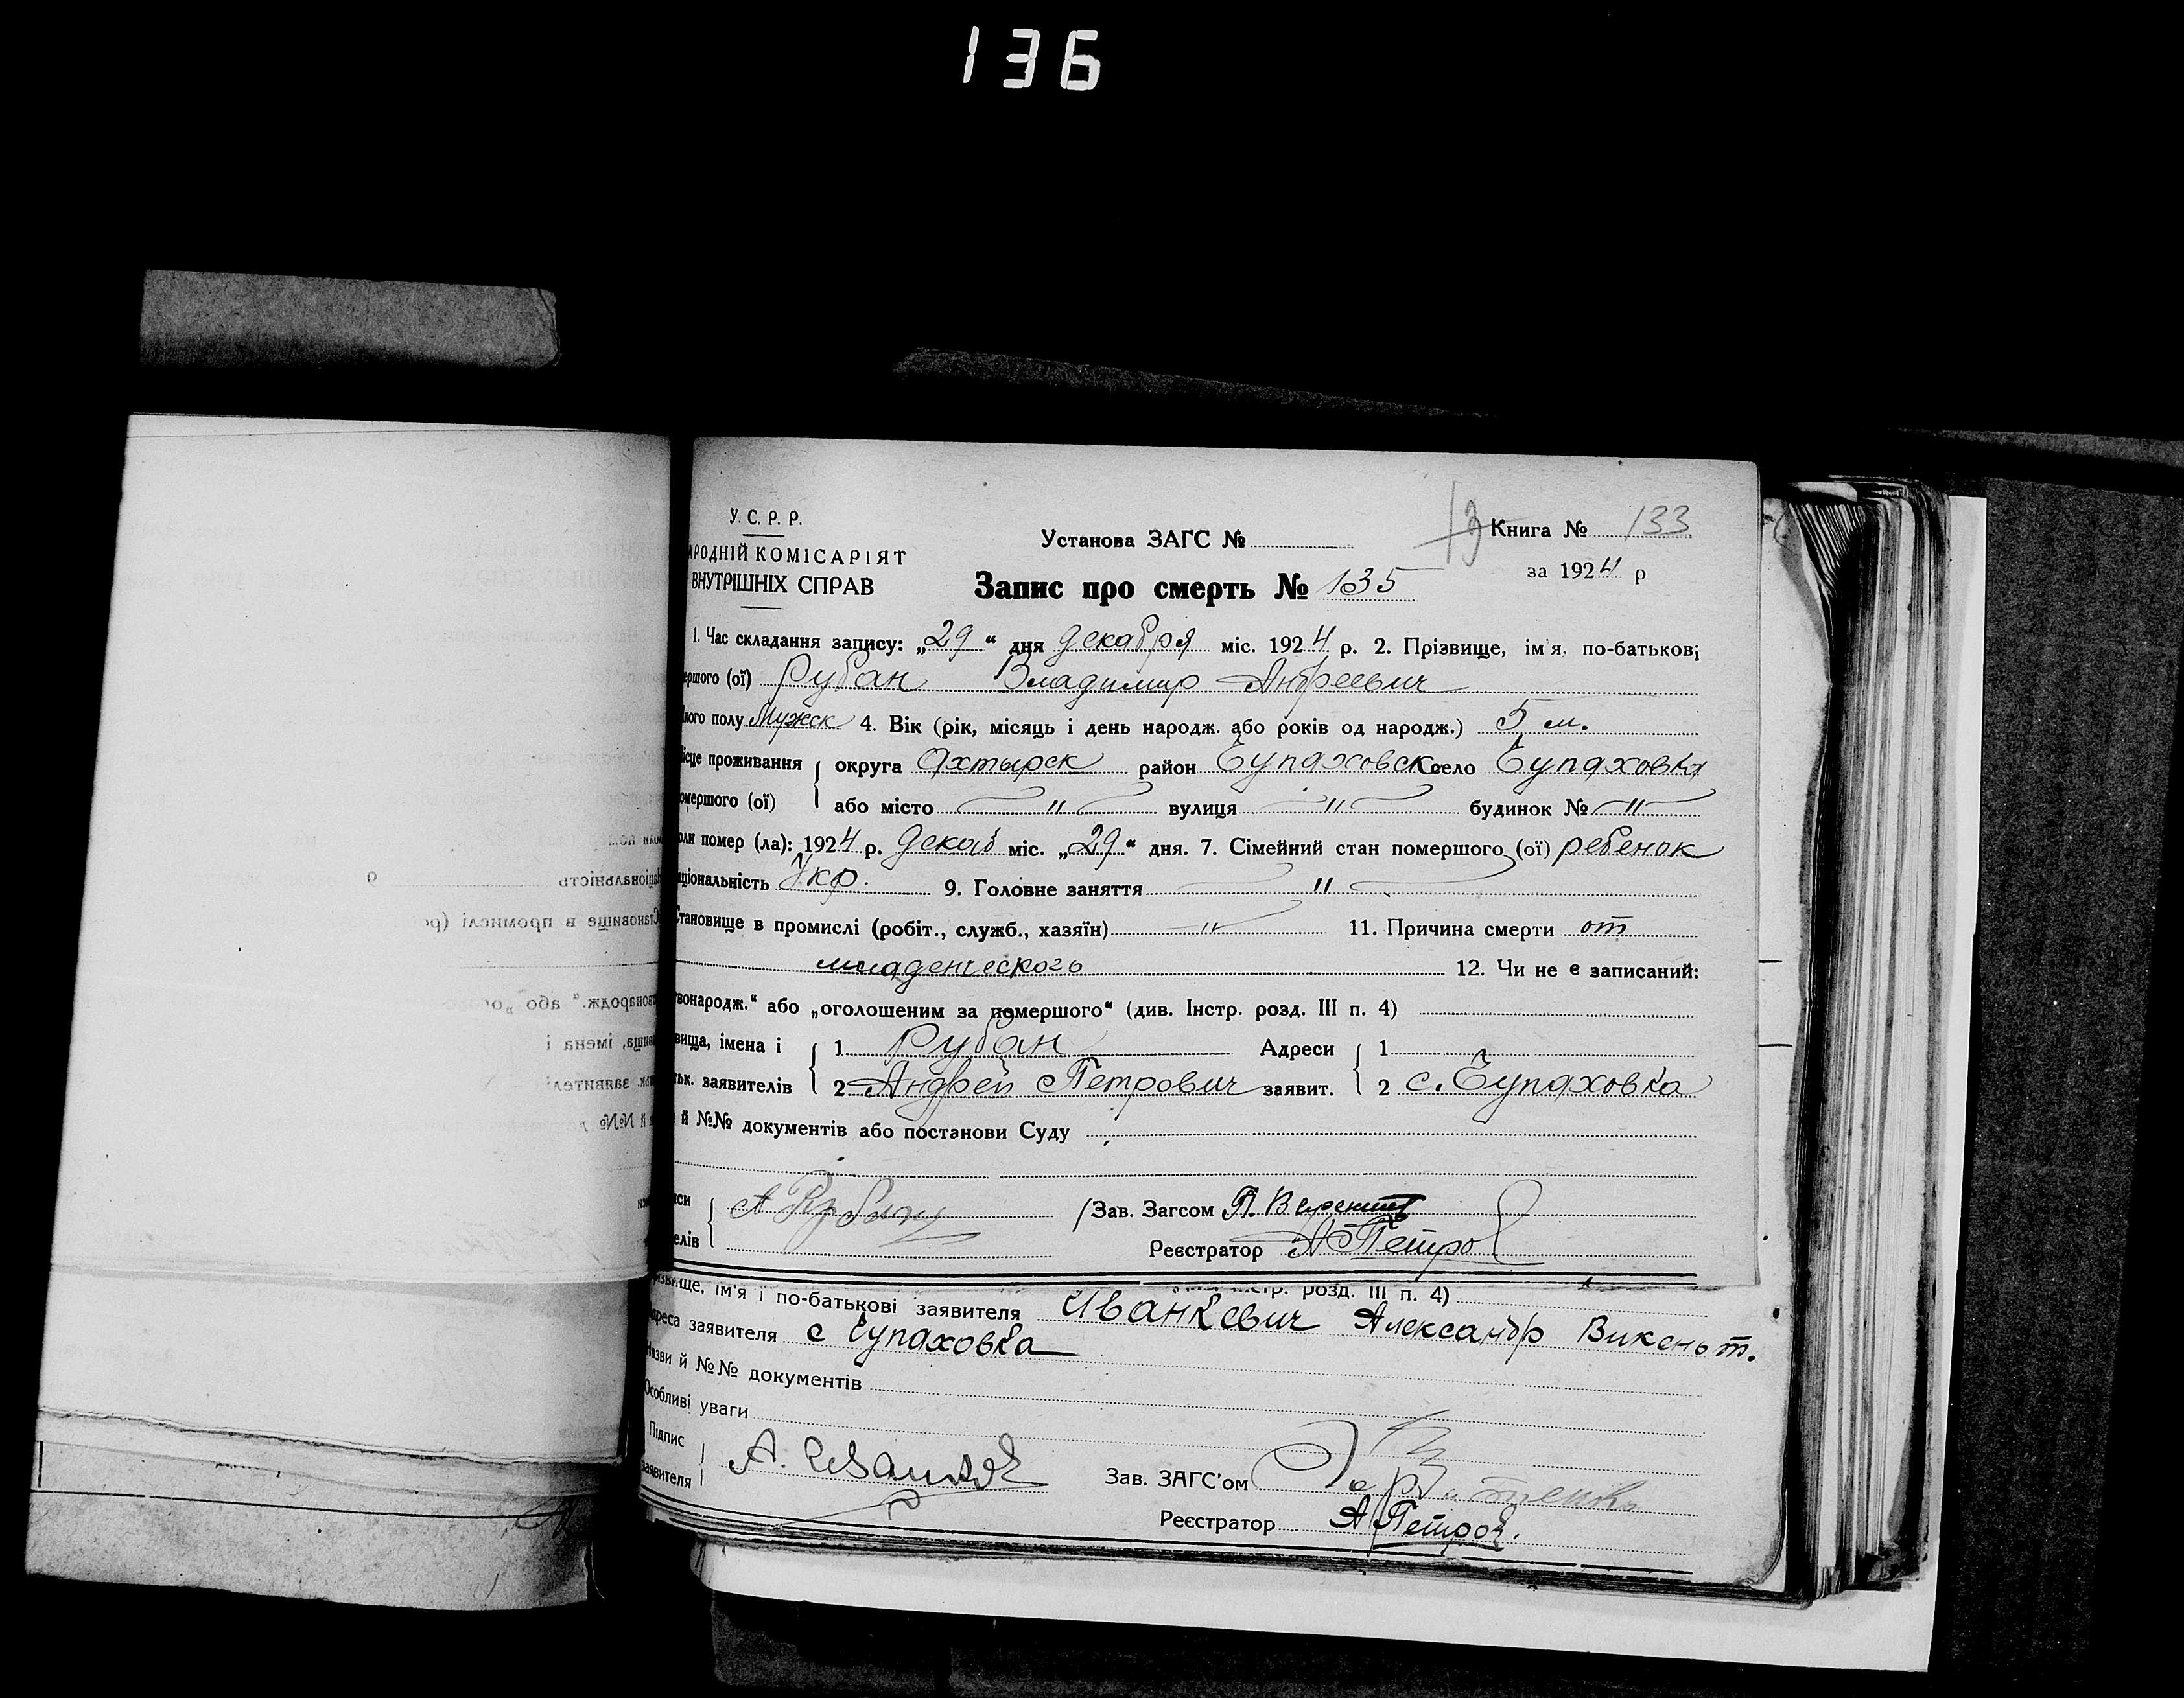 136
У. С. Р. Р.
АРОДНІЙ КОМІСАРІЯТ
ВНУТРІШНІХ СПРАВ
Установа ЗАГС №
Книга № 133
за 1924 р
Запис про смерть № 135
1. Час складання запису: „29“ дня декабря міс. 1924 р. 2. Прізвище, ім'я, по-батькові
ершого (ої) Рубан Владимир Андреевич
кого полу Мужск 4. Вік (рік, місяць і день народж. або років од народж.) 5 м.
ісце проживання округа Ахтырск район Чупаховск село Чупаховка
омершого (ої) або місто " вулиця " будинок № "
оли помер (ла): 1924 р. декаб міс. „29“ дня. 7. Сімейний стан помершого (ої) ребенок
аціональність Укр. 9. Головне заняття "
Становище в промислі (робіт., служб., хазяїн) " 11. Причина смерти от
младенческого 12. Чи не є записаний:
твонародж.“ або „оголошеним за помершого“ (див. Інстр. розд. III п. 4)
вища, імена і 1 Рубан Адреси 1
тьк. заявителів 2 Андрей Петрович заявит. 2 с. Чупаховка
й №№ документів або постанови Суду
иси А Рубан Зав. Загсом П.
елів Реєстратор А Петров
ізвище, ім'я і по-батькові заявителя Иванкевич Александр Викент.
стр. розд. III п. 4)
дреса заявителя с Чупаховка
Назви й №№ документів
Особливі уваги
Підпис
заявителя А. Иванкев Зав. ЗАГС'ом
Реєстратор А Петров.
Національність 9
Становище в промислі (ро
твонародж.“ або „ог
вища, імена і
тьк. заявителі
й №№ д